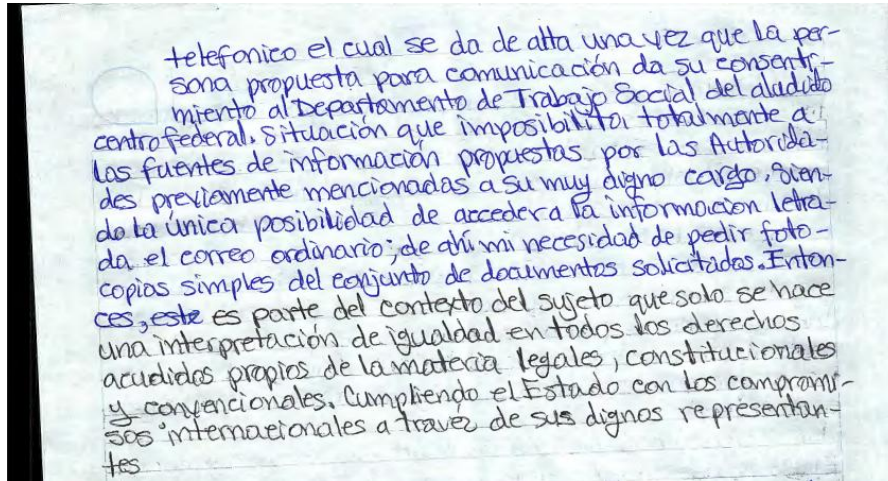 telefonico el cual se da de alta una vez que la per-
sona propuesta para comunicación da su consenti-
miento al Departamento de Trabajo Social del aludido
centro federal. Situación que imposibilita totalmente a
las fuentes de información propuestas por las Autorida-
des previamente mencionadas a su muy digno cargo. Sien-
do la única posibilidad de acceder a la información letra-
da el correo ordinario; de ahí mi necesidad de pedir foto-
copias simples del conjunto de documentos solicitados. Enton-
ces, este es parte del contexto del sujeto que solo se hace
una interpretación de igualdad en todos los derechos
acudidos propios de la materia legales, constitucionales
y convencionales. Cumpliendo el Estado con los compromi-
sos internacionales a travéz de sus dignos representan-
tes